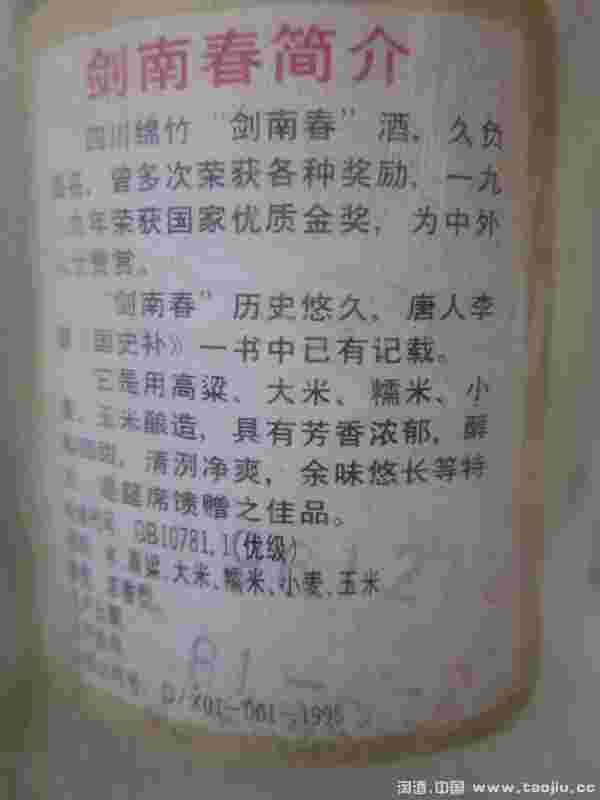 剑南春简介
四川绵竹“剑南春”酒，久负
盛名，曾多次荣获各种奖励，一九
九年荣获国家优质金奖，为中外
人士赞赏。
“剑南春”历史悠久，唐人李
《国史补》一书中已有记载。
它是用高粱、大米、糯米、小
麦、玉米酿造，具有芳香浓郁，醇
和回甜，清洌净爽，余味悠长等特
点，是筵席馈赠之佳品。
GB10781.1(优级)
水、高粱、大米、糯米、小麦、玉米
81-
Q/X01-001-1995
淘酒.中国 www.taojiu.cc